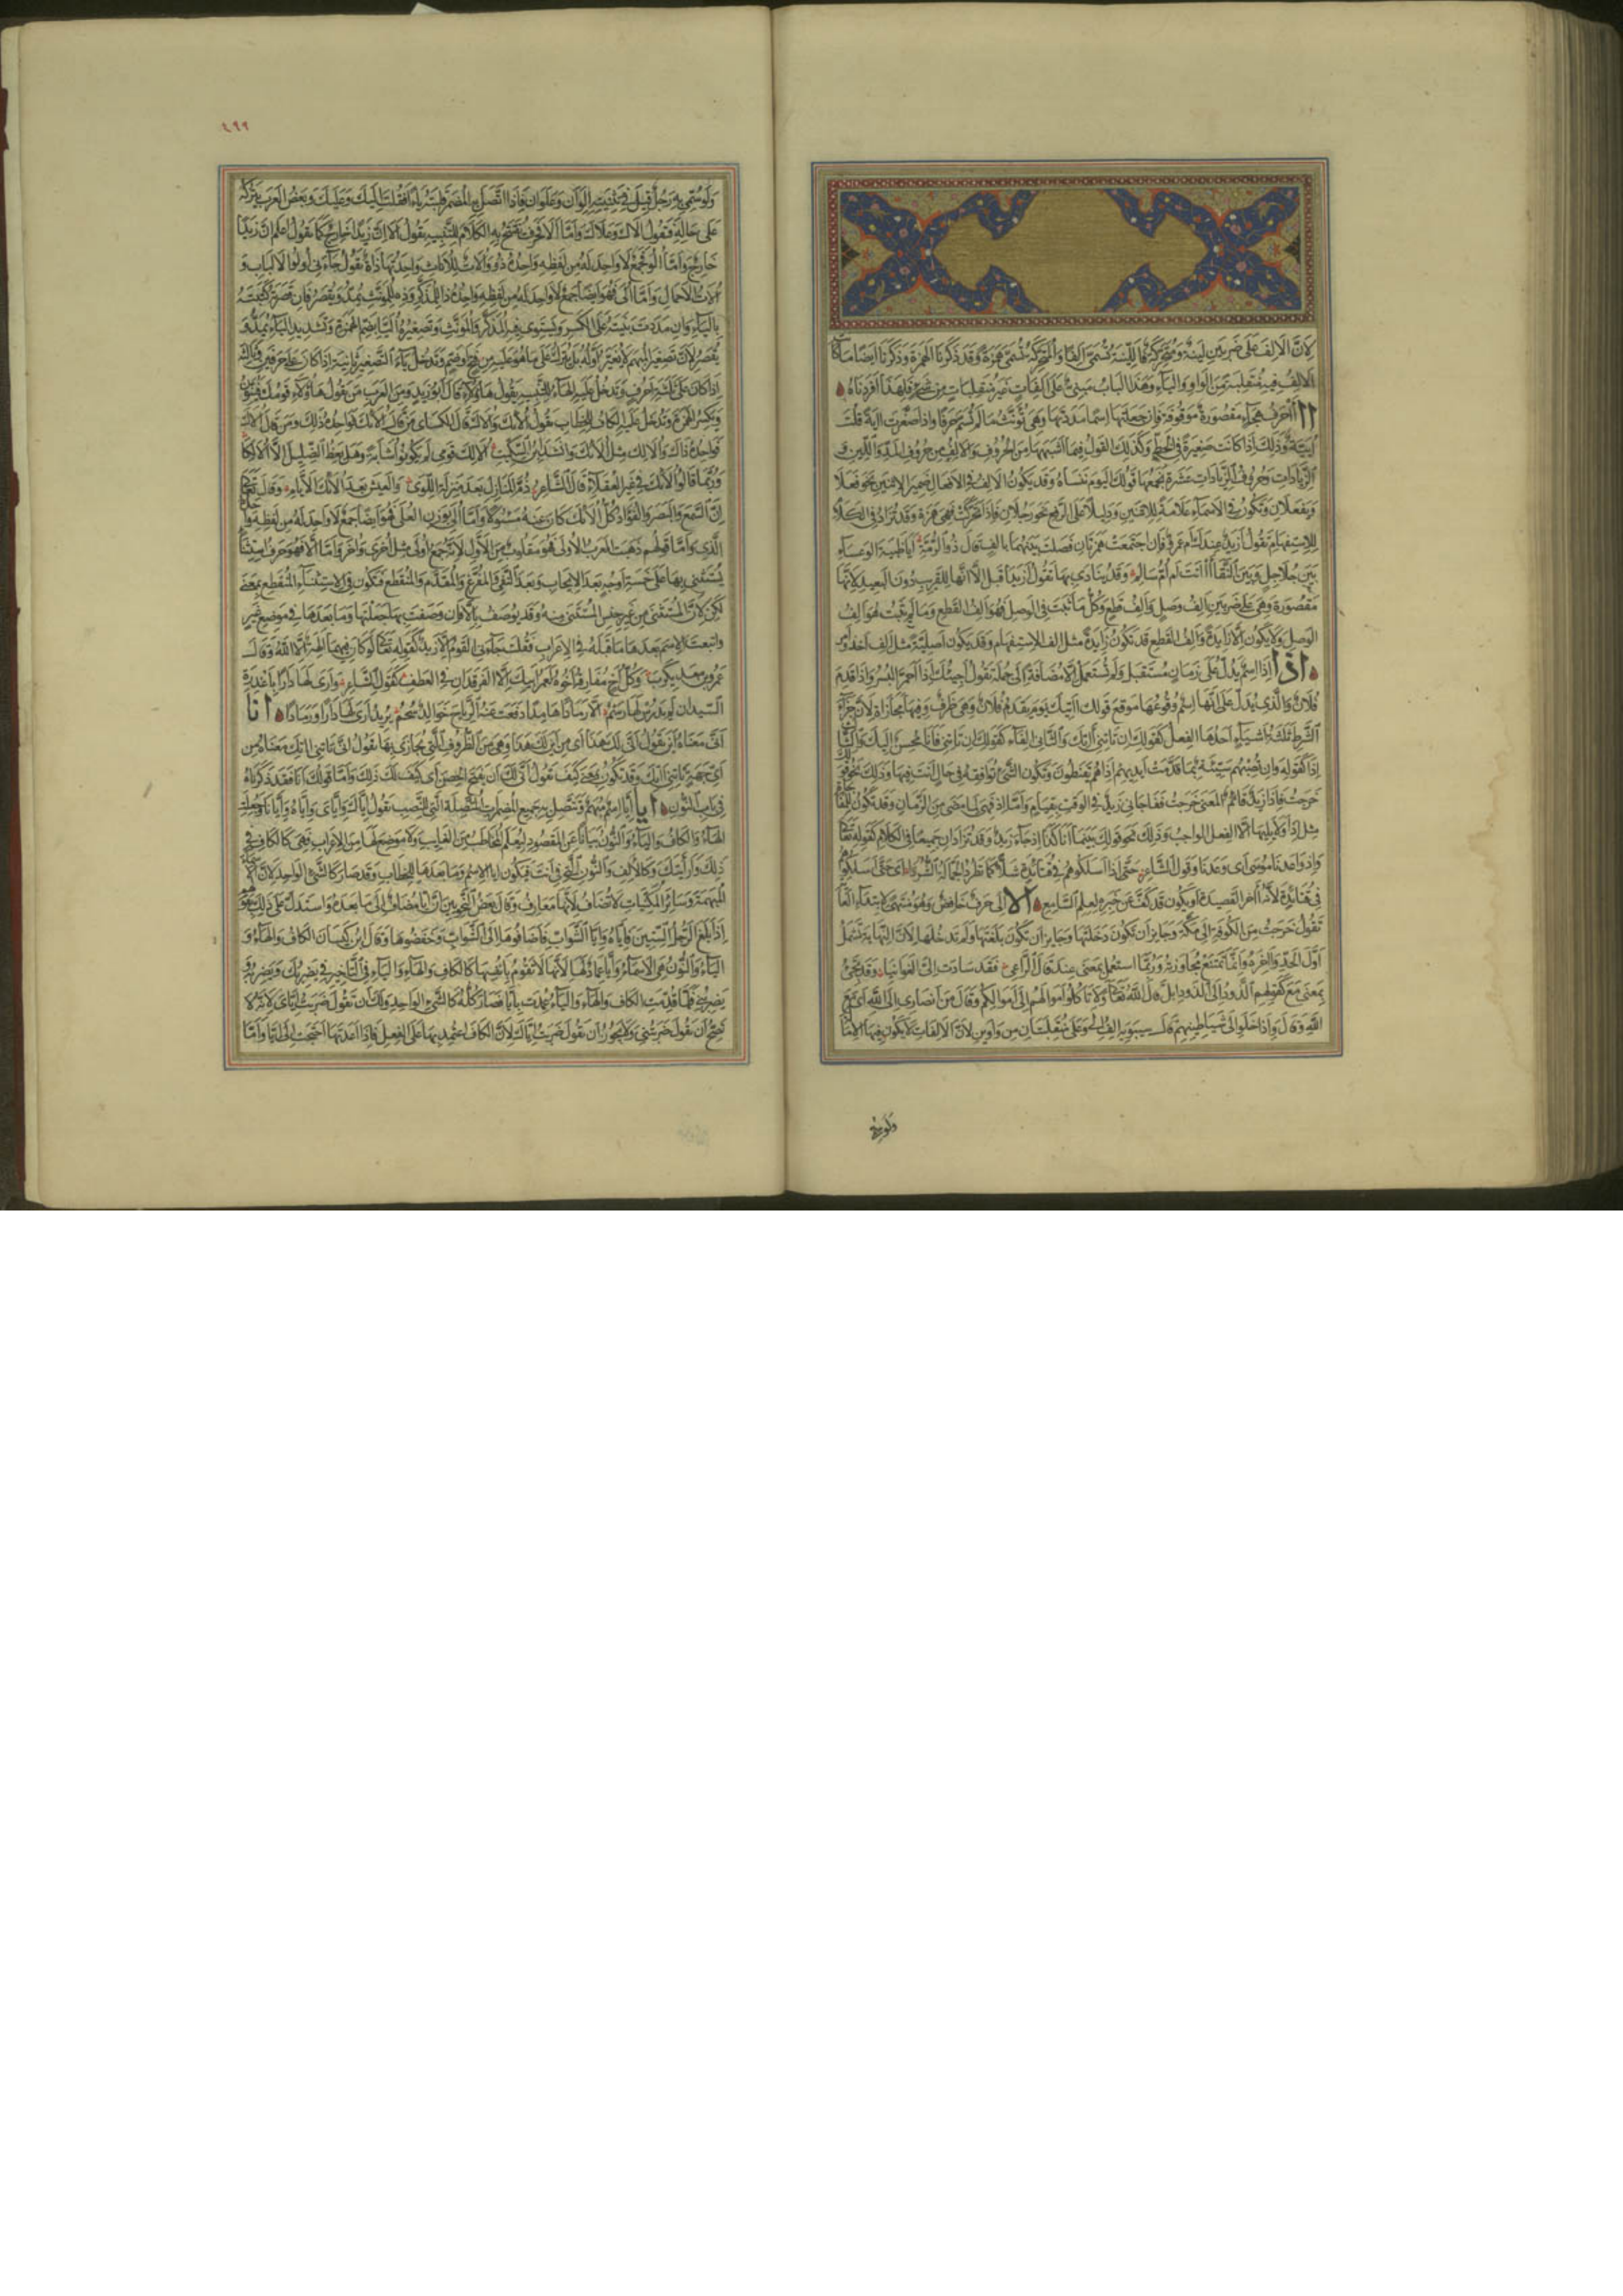 لِاَنَّ الاَلِفَ عَلَى ضَرْبَيْنِ لَيِّنَةٌ وَمُتَحَرِّكَةٌ فَاللَّيِّنَةُ تُسَمَّى اَلِفًا وَالْمُتَحَرِّكَةُ تُسَمَّى هَمْزَةً وَقَدْ ذَكَرْنَا الْهَمْزَةَ وَذَكَرْنَا اَيْضًا مَا كَانَ
الاَلِفُ فِيهِ مُنْقَلِبَةً مِنَ الْوَاوِ وَالْيَاءِ وَهَذَا الْبَابُ مَبْنِيٌّ عَلَى اَلِفَاتٍ غَيْرِ مُنْقَلِبَاتٍ مِنْ شَيْءٍ فَلِهَذَا اَفْرَدْنَاهُ
اا آ حَرْفُ هِجَاءٍ مَقْصُورَةٌ مَوْقُوفَةٌ فَاِنْ جَعَلْتَهَا اسْمًا مَدَدْتَهَا وَهِيَ تُؤَنَّثُ مَا لَمْ تُسَمَّ حَرْفًا وَاِذَا صَغَّرْتَ اٰيَةً قُلْتَ
اُيَيَّةٌ وَذَلِكَ اِذَا كَانَتْ صَغِيرَةً فِي الْخَطِّ وَكَذَلِكَ الْقَوْلُ فِيمَا اَشْبَهَهَا مِنَ الْحُرُوفِ وَالاَلِفُ مِنْ حُرُوفِ الْمَدِّ وَاللِّينِ وَ
الزِّيَادَاتِ وَحُرُوفُ الزِّيَادَاتِ عَشَرَةٌ يَجْمَعُهَا قَوْلُكَ الْيَوْمَ تَنْسَاهُ وَقَدْ يَكُونُ الاَلِفُ فِي الاَفْعَالِ ضَمِيرَ الاِثْنَيْنِ نَحْوُ فَعَلَا
وَيَفْعَلَانِ وَتَكُونُ فِي الاَسْمَاءِ عَلَامَةً لِلاِثْنَيْنِ وَدَلِيلًا عَلَى الرَّفْعِ نَحْوُ رَجُلَانِ فَاِذَا تَحَرَّكَتْ فَهِيَ هَمْزَةٌ وَقَدْ تُزَادُ فِي الْكَلَامِ
لِلاِسْتِفْهَامِ تَقُولُ اَزَيْدٌ عِنْدَكَ اَمْ عَمْرٌو فَاِنِ اجْتَمَعَتْ هَمْزَتَانِ فَصَلْتَ بَيْنَهُمَا بِاَلِفٍ قَالَ ذُو الرُّمَّةِ اَيَا ظَبْيَةَ الْوَعْسَاءِ
بَيْنَ جُلَاجِلٍ وَبَيْنَ النَّقَا اٰاَنْتِ اَمْ اُمُّ سَالِمٍ وَقَدْ يُنَادَى بِهَا تَقُولُ اَزَيْدُ اَقْبِلْ اِلَّا اَنَّهَا لِلْقَرِيبِ دُونَ الْبَعِيدِ لِاَنَّهَا
مَقْصُورَةٌ وَهِيَ عَلَى ضَرْبَيْنِ اَلِفُ وَصْلٍ وَاَلِفُ قَطْعٍ وَكُلُّ مَا ثَبَتَ فِي الْوَصْلِ فَهُوَ اَلِفُ الْقَطْعِ وَمَا لَمْ يَثْبُتْ فَهُوَ اَلِفُ
الْوَصْلِ وَلَا يَكُونُ اِلَّا زَايِدَةً وَاَلِفُ الْقَطْعِ قَدْ تَكُونُ زَايِدَةً مِثْلُ اَلِفِ الاِسْتِفْهَامِ وَقَدْ يَكُونُ اَصْلِيَّةً مِثْلُ اَلِفِ اَخَذَ وَاَمَرَ
اذا اِذَا اسْمٌ يَدُلُّ عَلَى زَمَانٍ مُسْتَقْبَلٍ وَلَمْ تُسْتَعْمَلْ اِلَّا مُضَافَةً اِلَى جُمْلَةٍ تَقُولُ اَجِيئُكَ اِذَا احْمَرَّ الْبُسْرُ وَاِذَا قَدِمَ
فُلَانٌ وَالَّذِي يَدُلُّ عَلَى اَنَّهَا اسْمٌ وُقُوعُهَا مَوْقِعَ قَوْلِكَ اٰتِيكَ يَوْمَ يَقْدَمُ فُلَانٌ وَهِيَ ظَرْفٌ وَفِيهَا مُجَازَاةٌ لِاَنَّ جَزَاءَ
الشَّرْطِ ثَلَثَةُ اَشْيَاءٍ اَحَدُهَا الْفِعْلُ كَقَوْلِكَ اِنْ تَأْتِنِي اٰتِكَ وَالثَّانِي الْفَاءُ كَقَوْلِكَ اِنْ تَأْتِنِي فَاَنَا مُحْسِنٌ اِلَيْكَ وَالثَّالِثُ
اِذَا كَقَوْلِهِ وَاِنْ تُصِبْهُمْ سَيِّئَةٌ بِمَا قَدَّمَتْ اَيْدِيهِمْ اِذَا هُمْ يَقْنَطُونَ وَتَكُونُ لِلشَّيْءِ تُوَافِقُهُ فِي حَالٍ اَنْتَ فِيهَا وَذَلِكَ نَحْوُ قَوْلِكَ
خَرَجْتُ فَاِذَا زَيْدٌ قَائِمٌ الْمَعْنَى خَرَجْتُ فَفَاجَأَنِي زَيْدٌ فِي الْوَقْتِ بِقِيَامٍ وَاَمَّا اِذْ فَهِيَ لِمَا مَضَى مِنَ الزَّمَانِ وَقَدْ تَكُونُ لِلْمُفَاجَاةِ
مِثْلُ اِذَا وَلَا يَلِيهَا اِلَّا الْفِعْلُ الْوَاجِبُ وَذَلِكَ نَحْوُ قَوْلِكَ بَيْنَمَا اَنَا كَذَا اِذْ جَاءَ زَيْدٌ وَقَدْ تُزَادَانِ جَمِيعًا فِي الْكَلَامِ كَقَوْلِهِ تَعَالَى
وَاِذْ وَاعَدْنَا مُوسَى اَيْ وَعَدْنَا وَقَوْلُ الشَّاعِرِ حَتَّى اِذَا اَسْلَكُوهُمْ فِي قُتَائِدَةٍ شَلًّا كَمَا تَطْرُدُ الْجَمَّالَةُ الشُّرُدَا اَيْ حَتَّى اَسْلَكُوهُمْ
فِي قُتَائِدَةٍ لِاَنَّهُ اٰخِرُ الْقَصِيدَةِ اَوْ يَكُونُ قَدْ كَفَّ عَنْ خَبَرِهِ لِعِلْمِ السَّامِعِ الا اِلَى حَرْفٌ خَافِضٌ وَهُوَ مُنْتَهًى لِابْتِدَاءِ الْغَايَةِ
تَقُولُ خَرَجْتُ مِنَ الْكُوفَةِ اِلَى مَكَّةَ وَجَايِزٌ اَنْ تَكُونَ دَخَلْتَهَا وَجَايِزٌ اَنْ تَكُونَ بَلَغْتَهَا وَلَمْ تَدْخُلْهَا لِاَنَّ النِّهَايَةَ تَشْمَلُ
اَوَّلَ الْحَدِّ وَاٰخِرَهُ وَاِنَّمَا تَمْتَنِعُ مُجَاوَزَتُهُ وَرُبَّمَا اسْتُعْمِلَ بِمَعْنَى عِنْدَ قَالَ الرَّاعِي فَقَدْ سَادَتْ اِلَيَّ الْغَوَانِيَا وَقَدْ تَجِيءُ
بِمَعْنَى مَعَ كَقَوْلِهِمْ الذَّوْدُ اِلَى الذَّوْدِ اِبِلٌ قَالَ اللهُ تَعَالَى وَلَا تَأْكُلُوا اَمْوَالَهُمْ اِلَى اَمْوَالِكُمْ وَقَالَ مَنْ اَنْصَارِي اِلَى اللهِ اَيْ مَعَ
اللهِ وَقَالَ وَاِذَا خَلَوْا اِلَى شَيَاطِينِهِمْ قَالَ سِيبَوَيْهِ اَلِفُ اِلَى وَعَلَى مُنْقَلِبَتَانِ مِنْ وَاوَيْنِ لِاَنَّ الاَلِفَاتِ لَا يَكُونُ فِيهَا الاِمَالَةُ
ولوسمي
٤٩٩
وَلَوْ سُمِّيَ بِهِ رَجُلٌ قِيلَ فِي تَثْنِيَتِهِ اِلَوَانِ وَعَلَوَانِ فَاِذَا اتَّصَلَ بِهِ الْمُضْمَرُ قَلَبْتَهُ يَاءً فَقُلْتَ اِلَيْكَ وَعَلَيْكَ وَبَعْضُ الْعَرَبِ يَتْرُكُهُ
عَلَى حَالِهِ فَيَقُولُ اِلَاكَ وَعَلَاكَ وَاَمَّا اَلَا فَحَرْفٌ يُفْتَتَحُ بِهِ الْكَلَامُ لِلتَّنْبِيهِ تَقُولُ اَلَا اِنَّ زَيْدًا خَارِجٌ كَمَا تَقُولُ اعْلَمْ اَنَّ زَيْدًا
خَارِجٌ وَاَمَّا اُلُو فَجَمْعٌ لَا وَاحِدَ لَهُ مِنْ لَفْظِهِ وَاحِدُهُ ذُو وَاُلَاتُ لِلاِنَاثِ وَاحِدَتُهَا ذَاتُ تَقُولُ جَاءَنِي اُولُوا الاَلْبَابِ وَ
اُلَاتُ الاَحْمَالِ وَاَمَّا اُلَى فَهُوَ اَيْضًا جَمْعٌ لَا وَاحِدَ لَهُ مِنْ لَفْظِهِ وَاحِدُهُ ذَا لِلْمُذَكَّرِ وَذِهِ لِلْمُؤَنَّثِ يُمَدُّ وَيُقْصَرُ فَاِنْ قَصَرْتَهُ كَتَبْتَهُ
بِالْيَاءِ وَاِنْ مَدَدْتَهُ بَنَيْتَهُ عَلَى الْكَسْرِ وَيَسْتَوِي فِيهِ الْمُذَكَّرُ وَالْمُؤَنَّثُ وَتَصْغِيرُهُ اُلَيَّا بِضَمِّ الْهَمْزَةِ وَتَشْدِيدِ الْيَاءِ يُمَدُّ وَ
يُقْصَرُ لِاَنَّ تَصْغِيرَ الْمُبْهَمِ لَا يُغَيِّرُ اَوَّلَهُ بَلْ يُتْرَكُ عَلَى مَا هُوَ عَلَيْهِ مِنْ فَتْحٍ اَوْ ضَمٍّ وَتَدْخُلُ يَاءُ التَّصْغِيرِ ثَانِيَةً اِذَا كَانَ عَلَى حَرْفَيْنِ وَثَالِثَةً
اِذَا كَانَ عَلَى ثَلَثَةِ اَحْرُفٍ وَتَدْخُلُ عَلَيْهِ الْهَاءُ لِلتَّنْبِيهِ تَقُولُ هَؤُلَاءِ قَالَ اَبُو زَيْدٍ وَمِنَ الْعَرَبِ مَنْ يَقُولُ هَؤُلَاءٍ قَوْمُكَ فَيُنَوِّنُ
وَيَكْسِرُ الْهَمْزَةَ وَتَدْخُلُ عَلَيْهِ الْكَافُ لِلْخِطَابِ تَقُولُ اُولَئِكَ وَاُلَاكَ قَالَ الْكِسَائِي مَنْ قَالَ اُلَئِكَ فَوَاحِدُهُ ذَلِكَ وَمَنْ قَالَ اُلَاكَ
فَوَاحِدُهُ ذَاكَ وَاُلَالِكَ مِثْلُ اُلَئِكَ وَانْشَدَ ابْنُ السِّكِّيتِ اُلَالِكَ قَوْمِي لَمْ يَكُونُوا اُشَابَةً وَهَلْ يَعِظُ الضِّلِّيلَ اِلَّا اُلَالِكَا
وَرُبَّمَا قَالُوا اُلَئِكَ فِي غَيْرِ الْعُقَلَاءِ قَالَ الشَّاعِرُ ذُمَّ الْمَنَازِلَ بَعْدَ مَنْزِلَةِ اللِّوَى وَالْعَيْشَ بَعْدَ اُلَئِكَ الاَيَّامِ وَقَالَ تَعَالَى
اِنَّ السَّمْعَ وَالْبَصَرَ وَالْفُؤَادَ كُلُّ اُلَئِكَ كَانَ عَنْهُ مَسْئُولًا وَاَمَّا الاُلَى بِوَزْنِ الْعُلَى فَهُوَ اَيْضًا جَمْعٌ لَا وَاحِدَ لَهُ مِنْ لَفْظِهِ وَاحِدُهُ
الَّذِي وَاَمَّا قَوْلُهُمْ ذَهَبَتِ الْعَرَبُ الاُلَى فَهُوَ مَقْلُوبٌ مِنَ الاُوَلِ لِاَنَّهُ جَمْعُ اُولَى مِثْلُ اُخْرَى وَاُخَرَ وَاَمَّا اِلَّا فَهُوَ حَرْفُ اسْتِثْنَاءٍ
يُسْتَثْنَى بِهَا عَلَى خَمْسَةِ اَوْجُهٍ بَعْدَ الاِيجَابِ وَبَعْدَ النَّفْيِ وَالْمُفَرَّغِ وَالْمُقَدَّمِ وَالْمُنْقَطِعِ فَتَكُونُ فِي الاِسْتِثْنَاءِ الْمُنْقَطِعِ بِمَعْنَى
لَكِنْ لِاَنَّ الْمُسْتَثْنَى مِنْ غَيْرِ جِنْسِ الْمُسْتَثْنَى مِنْهُ وَقَدْ يُوصَفُ بِاِلَّا فَاِنْ وَصَفْتَ بِهَا جَعَلْتَهَا وَمَا بَعْدَهَا فِي مَوْضِعِ غَيْرٍ
وَاتْبَعْتَ الاِسْمَ بَعْدَهَا مَا قَبْلَهُ فِي الاِعْرَابِ فَقُلْتَ جَاءَنِي الْقَوْمُ اِلَّا زَيْدٌ كَقَوْلِهِ تَعَالَى لَوْ كَانَ فِيهِمَا اٰلِهَةٌ اِلَّا اللهُ وَقَالَ
عَمْرُو بْنُ مَعْدِيكَرِبَ وَكُلُّ اَخٍ مُفَارِقُهُ اَخُوهُ لَعَمْرُ اَبِيكَ اِلَّا الْفَرْقَدَانِ فِي الْعَطْفِ كَقَوْلِ الشَّاعِرِ وَاَرَى لَهَا دَارًا بِاَغْدِرَةِ
السِّيدَانِ لَمْ يَدْرُسْ لَهَا رَسْمُ اِلَّا رَمَادًا هَامِدًا دَفَعَتْ عَنْهُ الرِّيَاحَ خَوَالِدٌ سُحْمُ يُرِيدُ اَرَى لَهَا دَارًا وَرَمَادًا انا
اَنَّى مَعْنَاهُ اَيْنَ تَقُولُ اَنَّى لَكَ هَذَا اَيْ مِنْ اَيْنَ لَكَ هَذَا وَهِيَ مِنَ الظُّرُوفِ الَّتِي يُجَازَى بِهَا تَقُولُ اَنَّى تَأْتِنِي اٰتِكَ مَعْنَاهُ مِنْ
اَيِّ جِهَةٍ تَأْتِنِي اٰتِكَ وَقَدْ تَكُونُ بِمَعْنَى كَيْفَ تَقُولُ اَنَّى لَكَ اَنْ تَفْتَحَ الْحِصْنَ اَيْ كَيْفَ لَكَ ذَلِكَ وَاَمَّا قَوْلُكَ اَنَا فَقَدْ ذَكَرْنَاهُ
فِي بَابِ النُّونِ ايا اِيَّا اسْمٌ مُبْهَمٌ وَتَتَّصِلُ بِهِ جَمِيعُ الْمُضْمَرَاتِ الْمُتَّصِلَةِ الَّتِي لِلنَّصْبِ تَقُولُ اِيَّاكَ وَاِيَّايَ وَاِيَّاهُ وَاِيَّانَا وَجُعِلَتِ
الْهَاءُ وَالْكَافُ وَالْيَاءُ وَالنُّونُ بَيَانًا عَنِ الْمَقْصُودِ لِيُعْلَمَ الْمُخَاطَبُ مِنَ الْغَايِبِ وَلَا مَوْضِعَ لَهَا مِنَ الاِعْرَابِ فَهِيَ كَالْكَافِ فِي
ذَلِكَ وَاَرَاَيْتَكَ وَكَالاَلِفِ وَالنُّونِ الَّتِي فِي اَنْتَ فَيَكُونُ اِيَّا الاِسْمُ وَمَا بَعْدَهَا لِلْخِطَابِ وَقَدْ صَارَ كَالشَّيْءِ الْوَاحِدِ لِاَنَّ الاَسْمَاءَ
الْمُبْهَمَةَ وَسَائِرَ الْمَكْنِيَّاتِ لَا تُضَافُ لِاَنَّهَا مَعَارِفُ وَقَالَ بَعْضُ النَّحْوِيِّينَ اِنَّ اِيَّا مُضَافٌ اِلَى مَا بَعْدَهُ وَاسْتَدَلَّ عَلَى ذَلِكَ بِقَوْلِهِمْ
اِذَا بَلَغَ الرَّجُلُ السِّتِّينَ فَاِيَّاهُ وَاِيَّا الشَّوَابِّ فَاَضَافُوهَا اِلَى الشَّوَابِّ وَخَفَضُوهَا وَقَالَ ابْنُ كَيْسَانَ الْكَافُ وَالْهَاءُ وَ
الْيَاءُ وَالنُّونُ هِيَ الاَسْمَاءُ وَاِيَّا عِمَادٌ لَهَا لِاَنَّهَا لَا تَقُومُ بِاَنْفُسِهَا كَالْكَافِ وَالْهَاءِ وَالْيَاءِ فِي التَّأْخِيرِ فِي يَضْرِبُكَ وَيَضْرِبُهُ وَ
يَضْرِبُنِي فَلَمَّا قُدِّمَتِ الْكَافُ وَالْهَاءُ وَالْيَاءُ عُمِدَتْ بِاِيَّا فَصَارَ كُلُّهُ كَالشَّيْءِ الْوَاحِدِ وَلَكَ اَنْ تَقُولَ ضَرَبْتُ اِيَّايَ لِاَنَّهُ لَا
يَصِحُّ اَنْ تَقُولَ ضَرَبْتُنِي وَلَا يَجُوزُ اَنْ تَقُولَ ضَرَبْتُ اِيَّاكَ لِاَنَّ الْكَافَ اعْتُمِدَ بِهَا عَلَى الْفِعْلِ فَاِذَا اَعَدْتَهَا احْتَجْتَ اِلَى اِيَّا وَاَمَّا